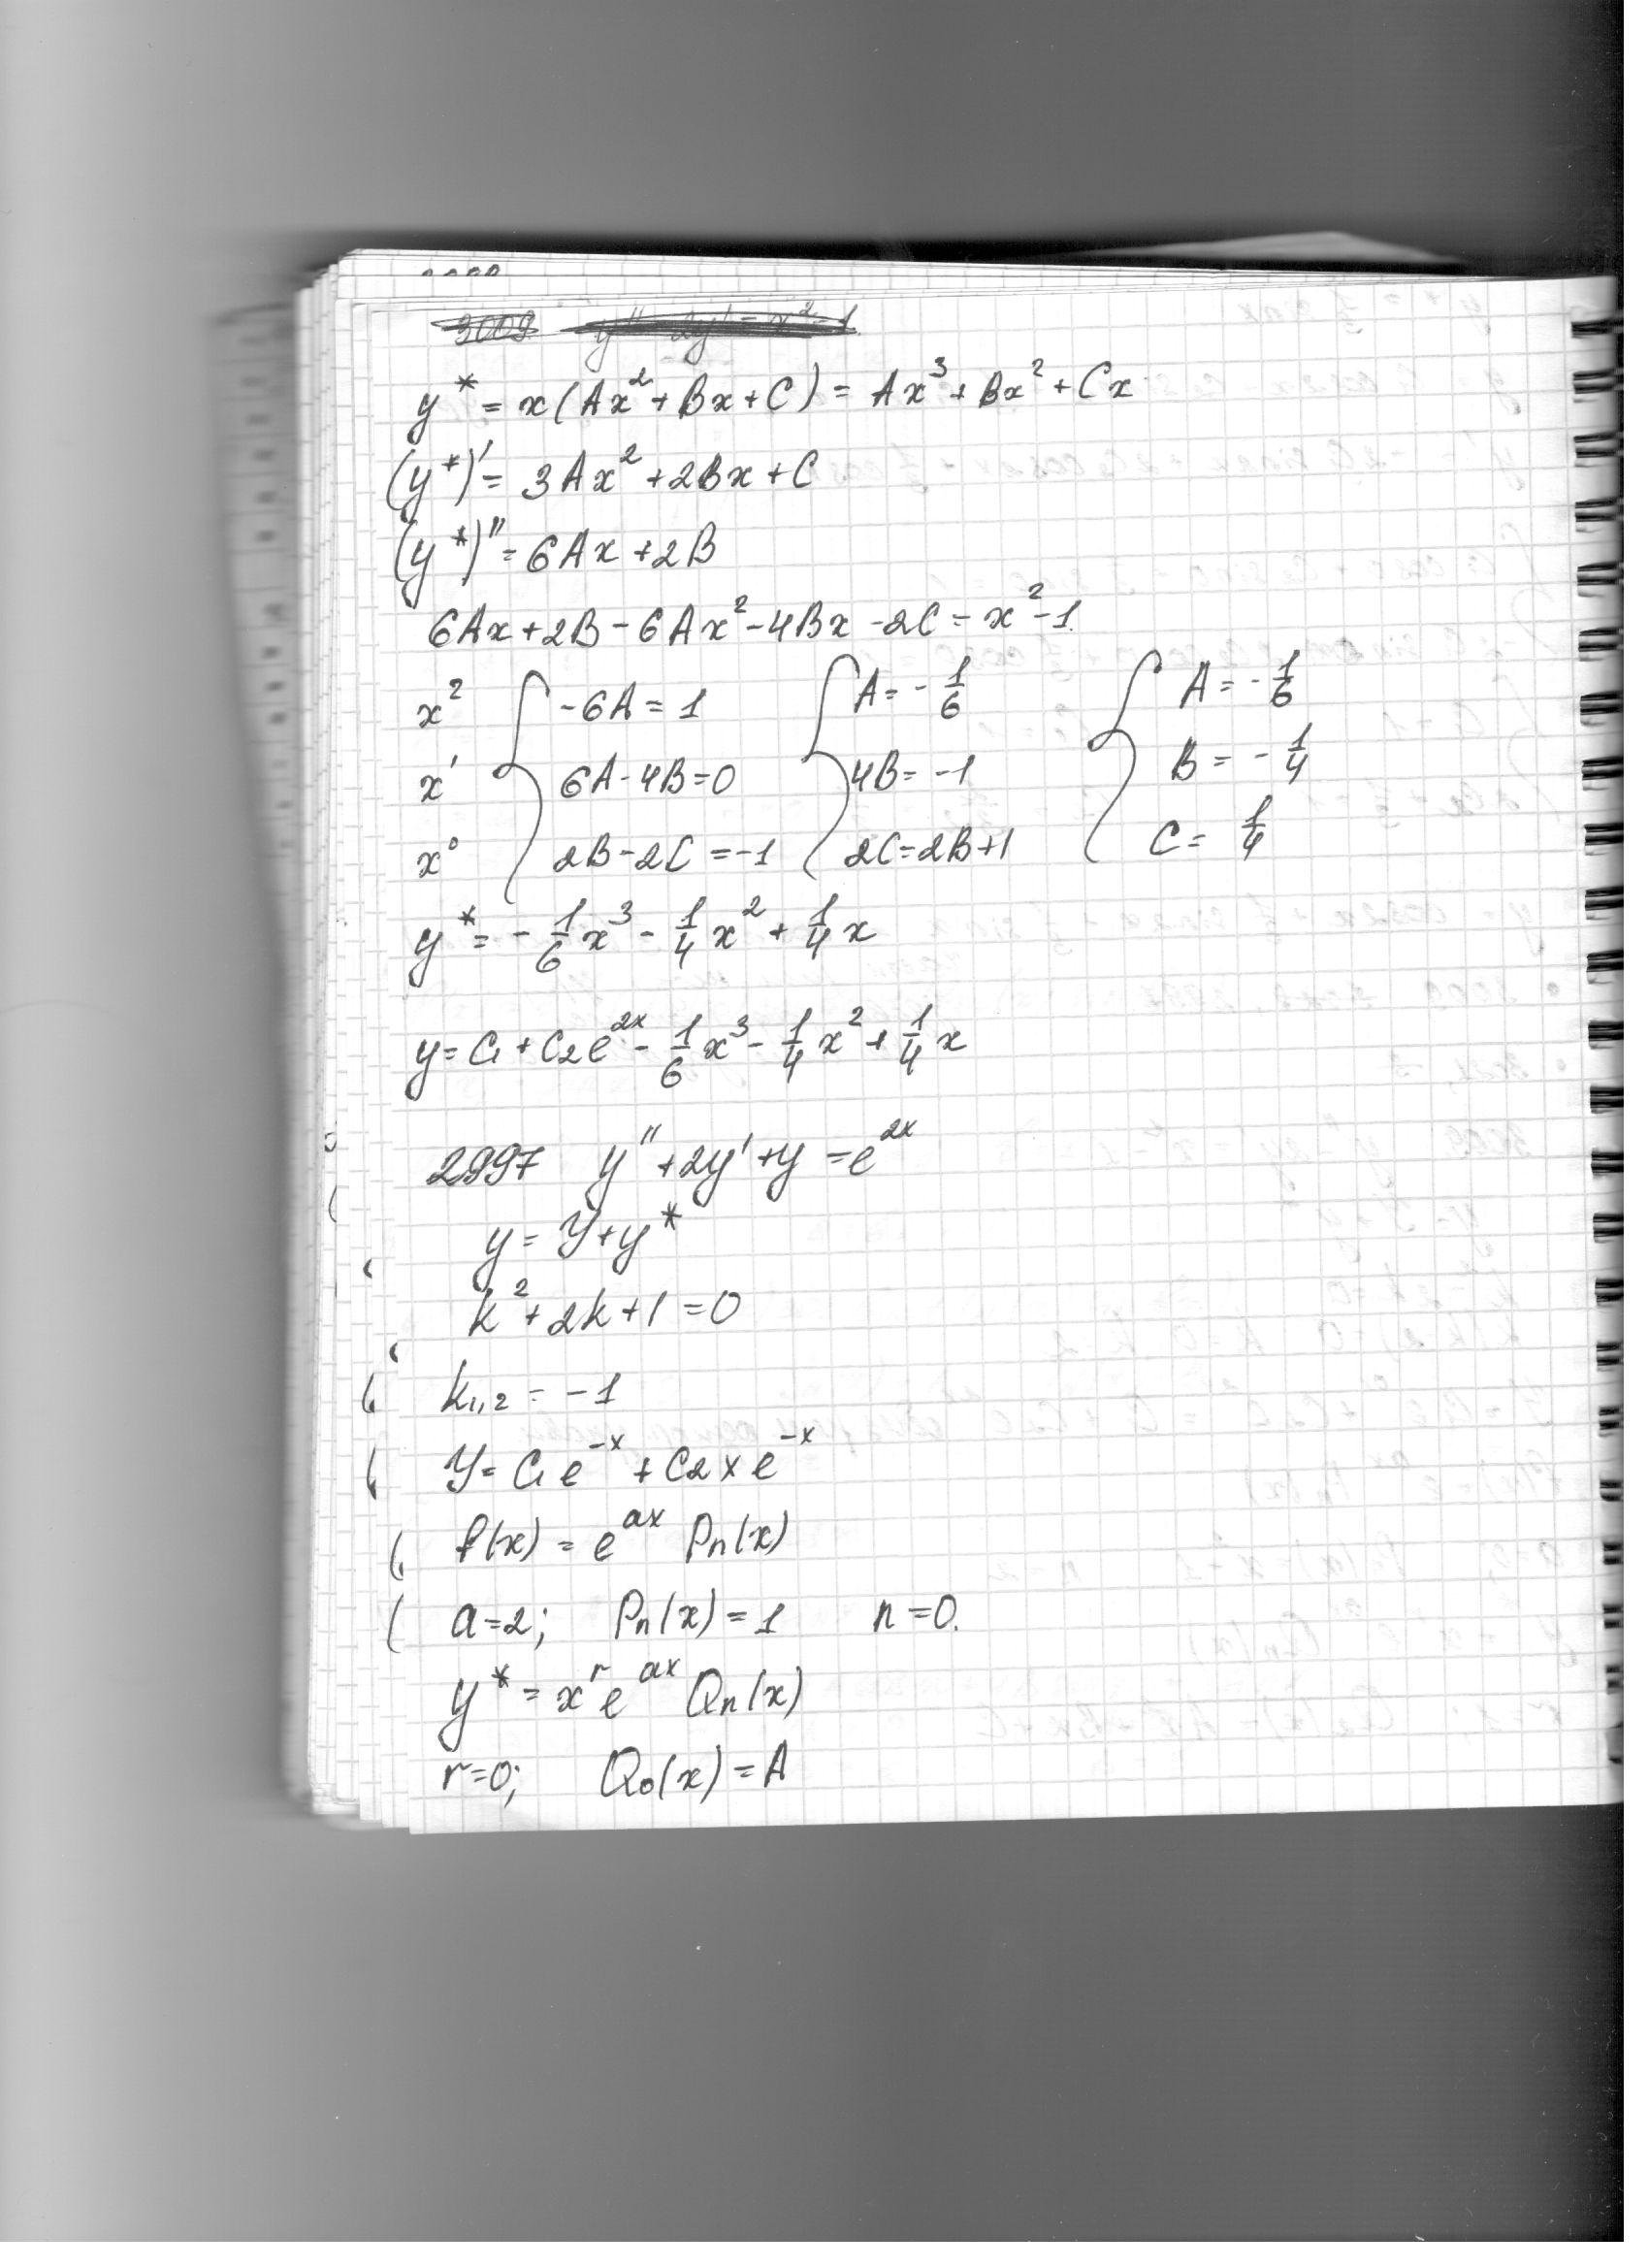 3009 y'' - 2y' = x² - 1
y* = x(Ax² + Bx + C) = Ax³ + Bx² + Cx
(y*)' = 3Ax² + 2Bx + C
(y*)'' = 6Ax + 2B
6Ax + 2B - 6Ax² - 4Bx - 2C = x² - 1
x² { -6A = 1 { A = - 1/6 { A = - 1/6
x¹ 6A - 4B = 0 4B = -1 B = - 1/4
x⁰ 2B - 2C = -1 2C = 2B + 1 C = 1/4
y* = - 1/6 x³ - 1/4 x² + 1/4 x
y = C₁ + C₂e^2x - 1/6 x³ - 1/4 x² + 1/4 x
2997 y'' + 2y' + y = e^2x
y = Y + y*
k² + 2k + 1 = 0
k₁,₂ = -1
Y = C₁e^-x + C₂xe^-x
f(x) = e^ax Pn(x)
a = 2; Pn(x) = 1 n = 0.
y* = x^r e^ax Qn(x)
r = 0; Q₀(x) = A